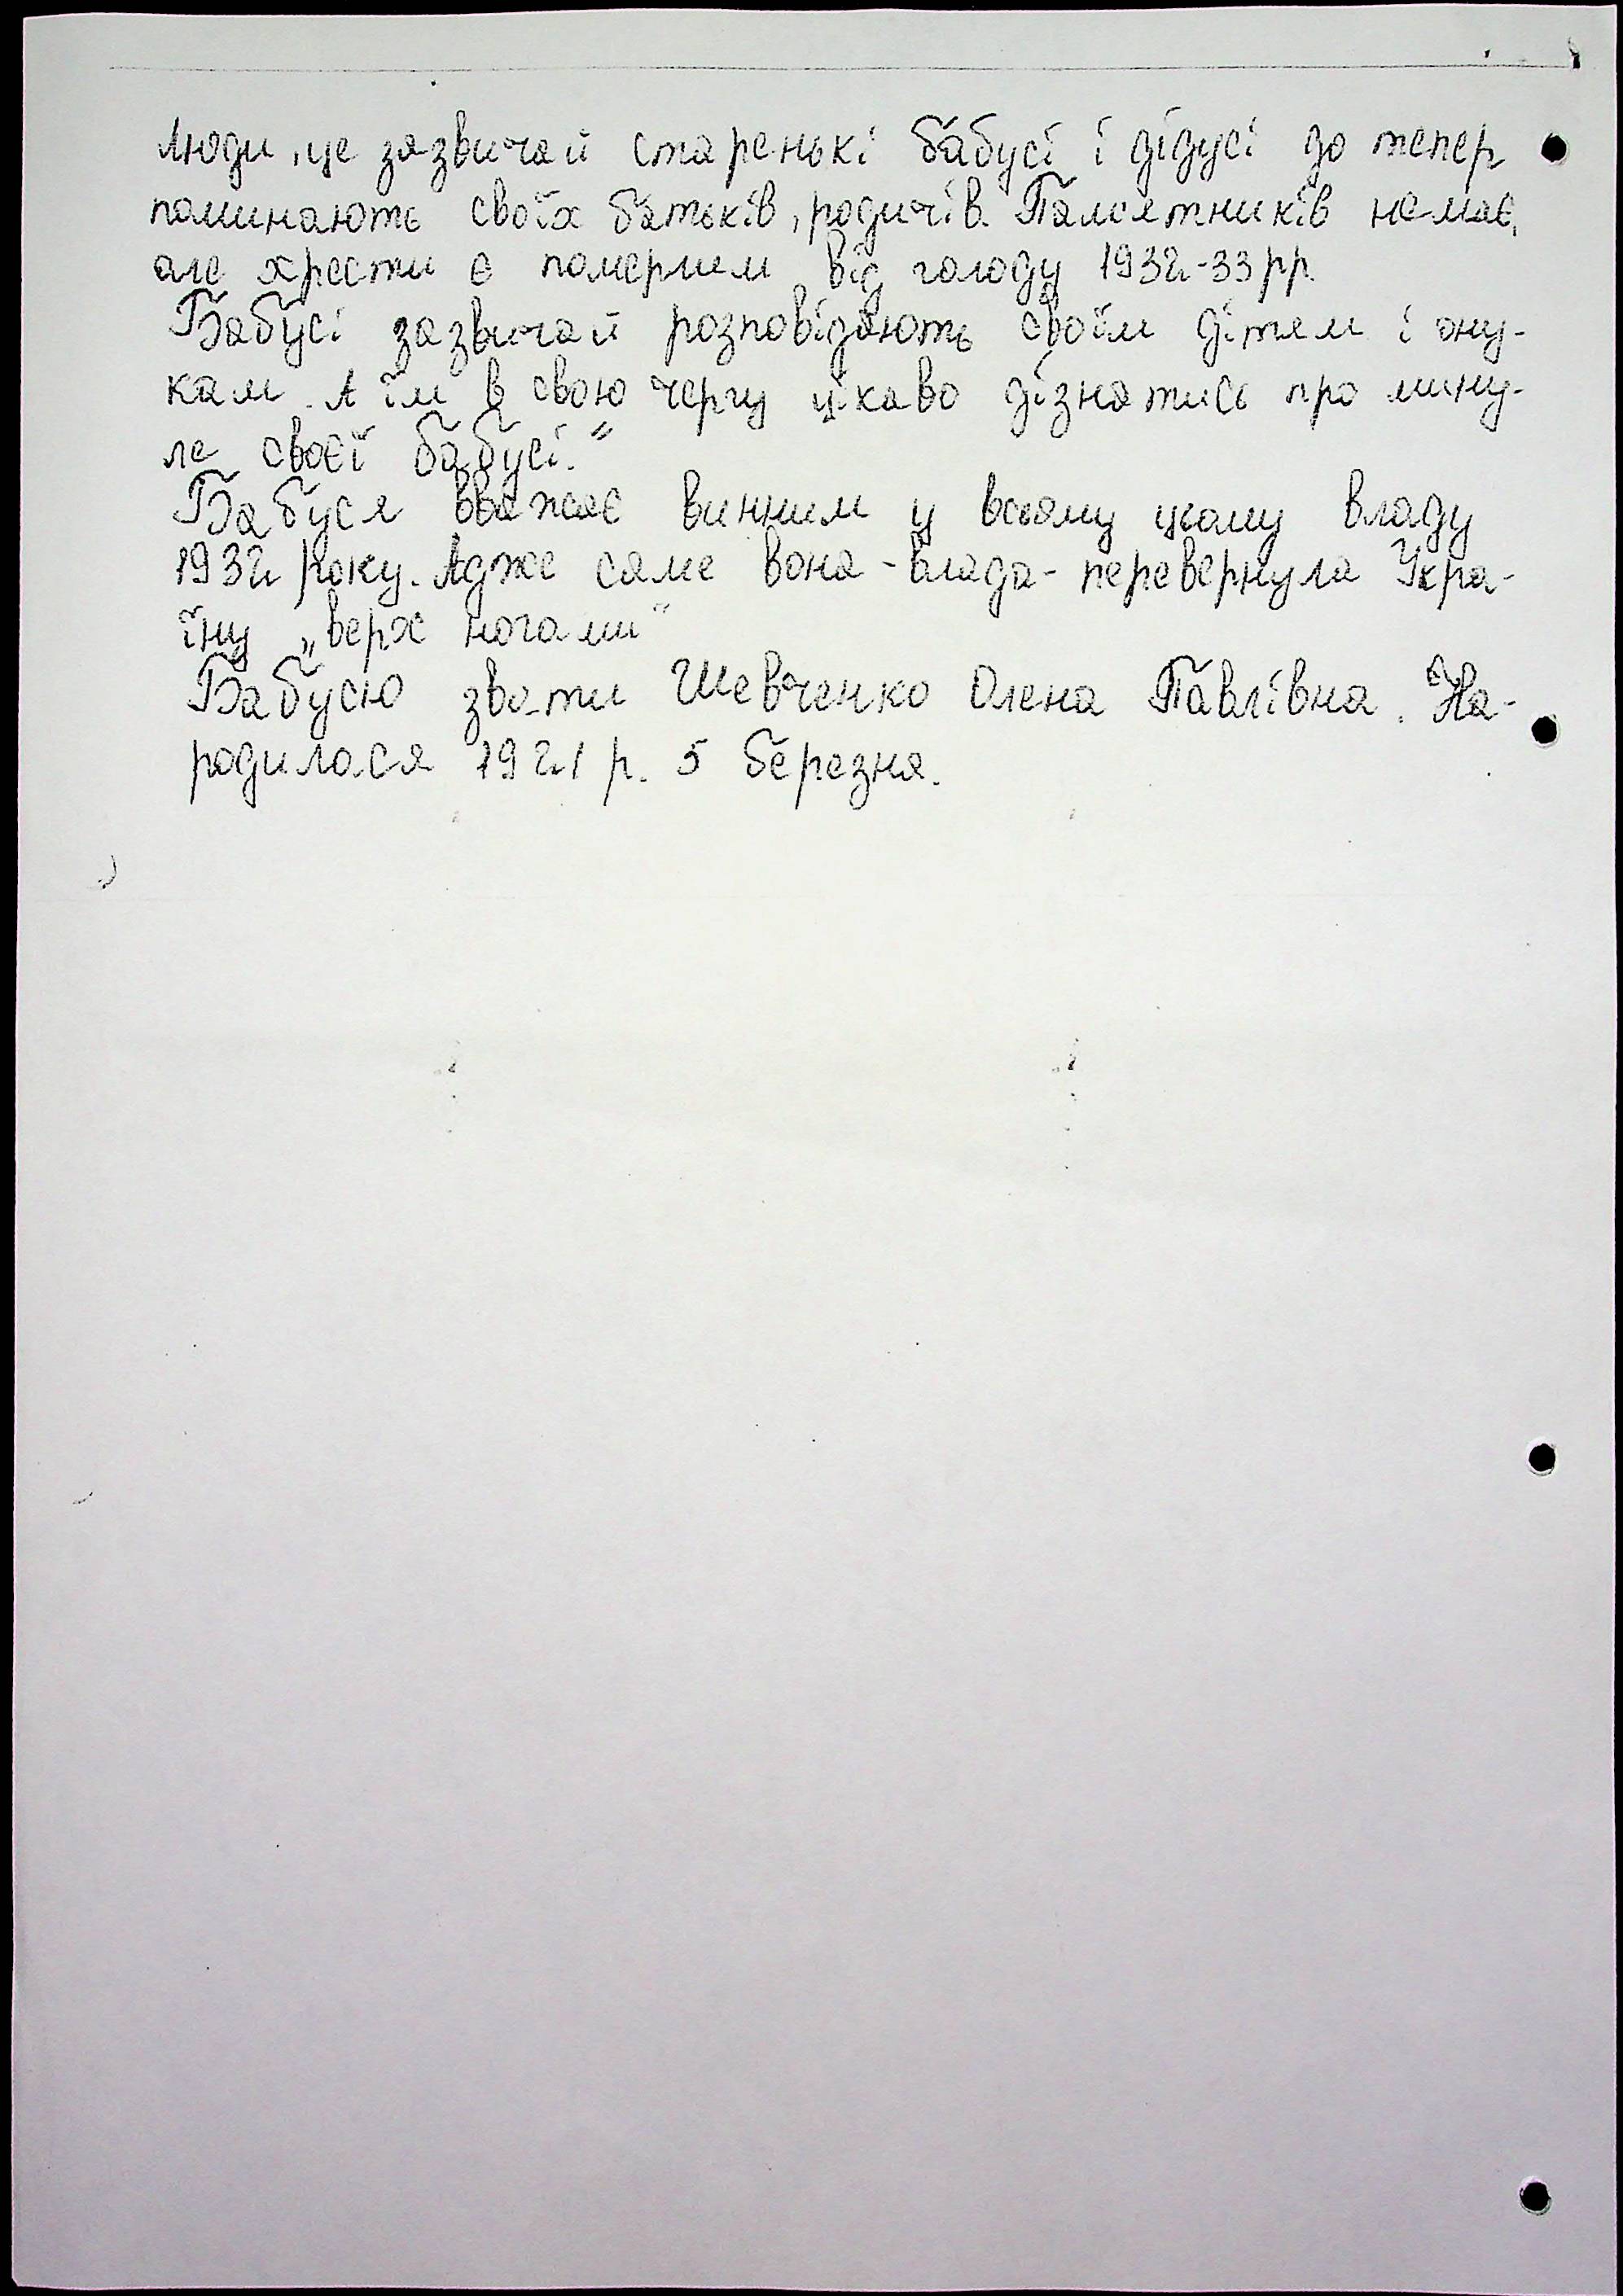 Люди, це зазвичай старенькі бабусі і дідусі до тепер
поминають своїх батьків, родичів. Памятників немає,
але хрести є померлим від голоду 1932-33 рр.
Бабусі зазвичай розповідають своїм дітям і ону-
кам. А їм в свою чергу цікаво дізнатись про мину-
ле своєї бабусі."
Бабуся вважає винним у всьому цьому владу
1932 року. Адже саме вона - влада - перевернула Укра-
їну „верх ногами"
Бабусю звати Шевченко Олена Павлівна. На-
родилася 1921 р. 5 березня.